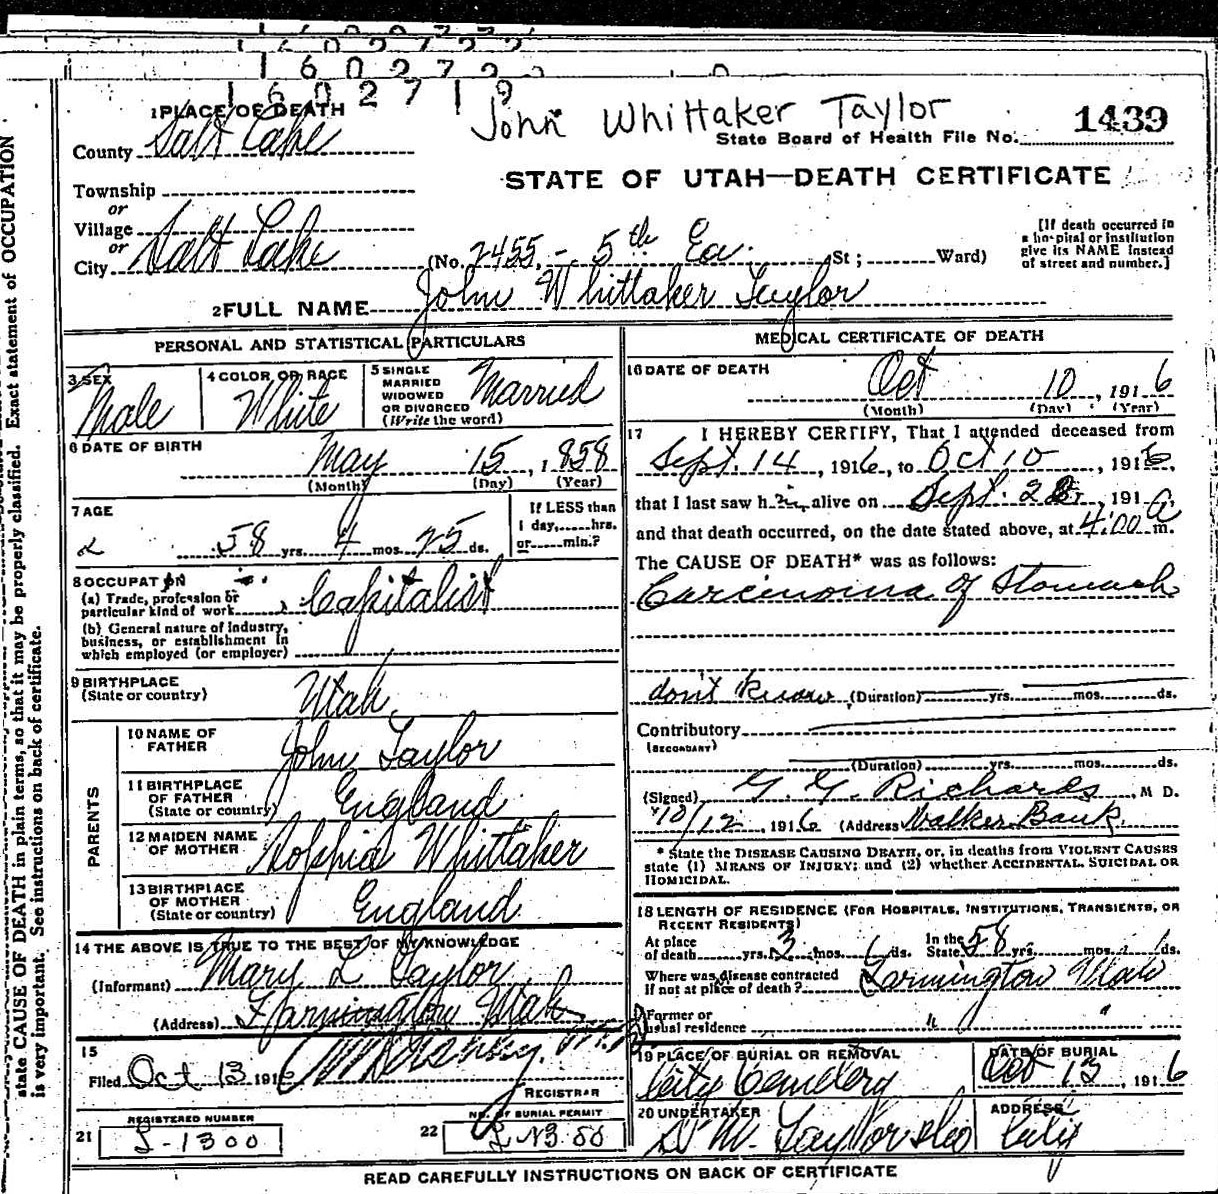 1602722
1602719
John Whittaker Taylor
State Board of Health File No. 1439
STATE OF UTAH—DEATH CERTIFICATE
1 PLACE OF DEATH
County Salt Lake
Township
or
Village
or
City Salt Lake (No. 2455, - 5th Ea. St; Ward)
[If death occurred in a hospital or institution give its NAME instead of street and number.]
2 FULL NAME John Whittaker Taylor
PERSONAL AND STATISTICAL PARTICULARS
3 SEX Male
4 COLOR OR RACE White
5 SINGLE MARRIED WIDOWED OR DIVORCED (Write the word) Married
6 DATE OF BIRTH May 15, 1858
(Month) (Day) (Year)
7 AGE 58 yrs. 4 mos. 25 ds.
If LESS than 1 day, hrs. or min.?
8 OCCUPATION
(a) Trade, profession or particular kind of work Capitalist
(b) General nature of industry, business, or establishment in which employed (or employer)
9 BIRTHPLACE (State or country) Utah
PARENTS
10 NAME OF FATHER John Taylor
11 BIRTHPLACE OF FATHER (State or country) England
12 MAIDEN NAME OF MOTHER Sophia Whittaker
13 BIRTHPLACE OF MOTHER (State or country) England
14 THE ABOVE IS TRUE TO THE BEST OF MY KNOWLEDGE
(Informant) Mary L Taylor
(Address) Farmington Utah
15
Filed Oct 13 1916
REGISTRAR
REGISTERED NUMBER
21 L-1300
NO. OF BURIAL PERMIT
22
MEDICAL CERTIFICATE OF DEATH
16 DATE OF DEATH Oct 10, 1916
(Month) (Day) (Year)
17 I HEREBY CERTIFY, That I attended deceased from
Sept. 14, 1916, to Oct 10, 1916,
that I last saw him alive on Sept. 28, 191
and that death occurred, on the date stated above, at 4:00 a m.
The CAUSE OF DEATH* was as follows:
Carcinoma of Stomach
don't know (Duration) yrs. mos. ds.
Contributory
(SECONDARY)
(Duration) yrs. mos. ds.
(Signed) G. G. Richards, M D.
10/12, 1916 (Address Walker Bank.
* State the DISEASE CAUSING DEATH, or, in deaths from VIOLENT CAUSES
state (1) MEANS OF INJURY; and (2) whether ACCIDENTAL, SUICIDAL OR
HOMICIDAL.
18 LENGTH OF RESIDENCE (FOR HOSPITALS, INSTITUTIONS, TRANSIENTS, OR
RECENT RESIDENTS)
At place of death yrs. 3 mos. 6 ds. In the State 58 yrs. mos. ds.
Where was disease contracted If not at place of death? Farmington Utah
Former or usual residence " "
19 PLACE OF BURIAL OR REMOVAL City Cemetery
DATE OF BURIAL Oct 13, 1916
20 UNDERTAKER
ADDRESS City
READ CAREFULLY INSTRUCTIONS ON BACK OF CERTIFICATE
state CAUSE OF DEATH in plain terms, so that it may be properly classified. Exact statement of OCCUPATION
is very important. See instructions on back of certificate.